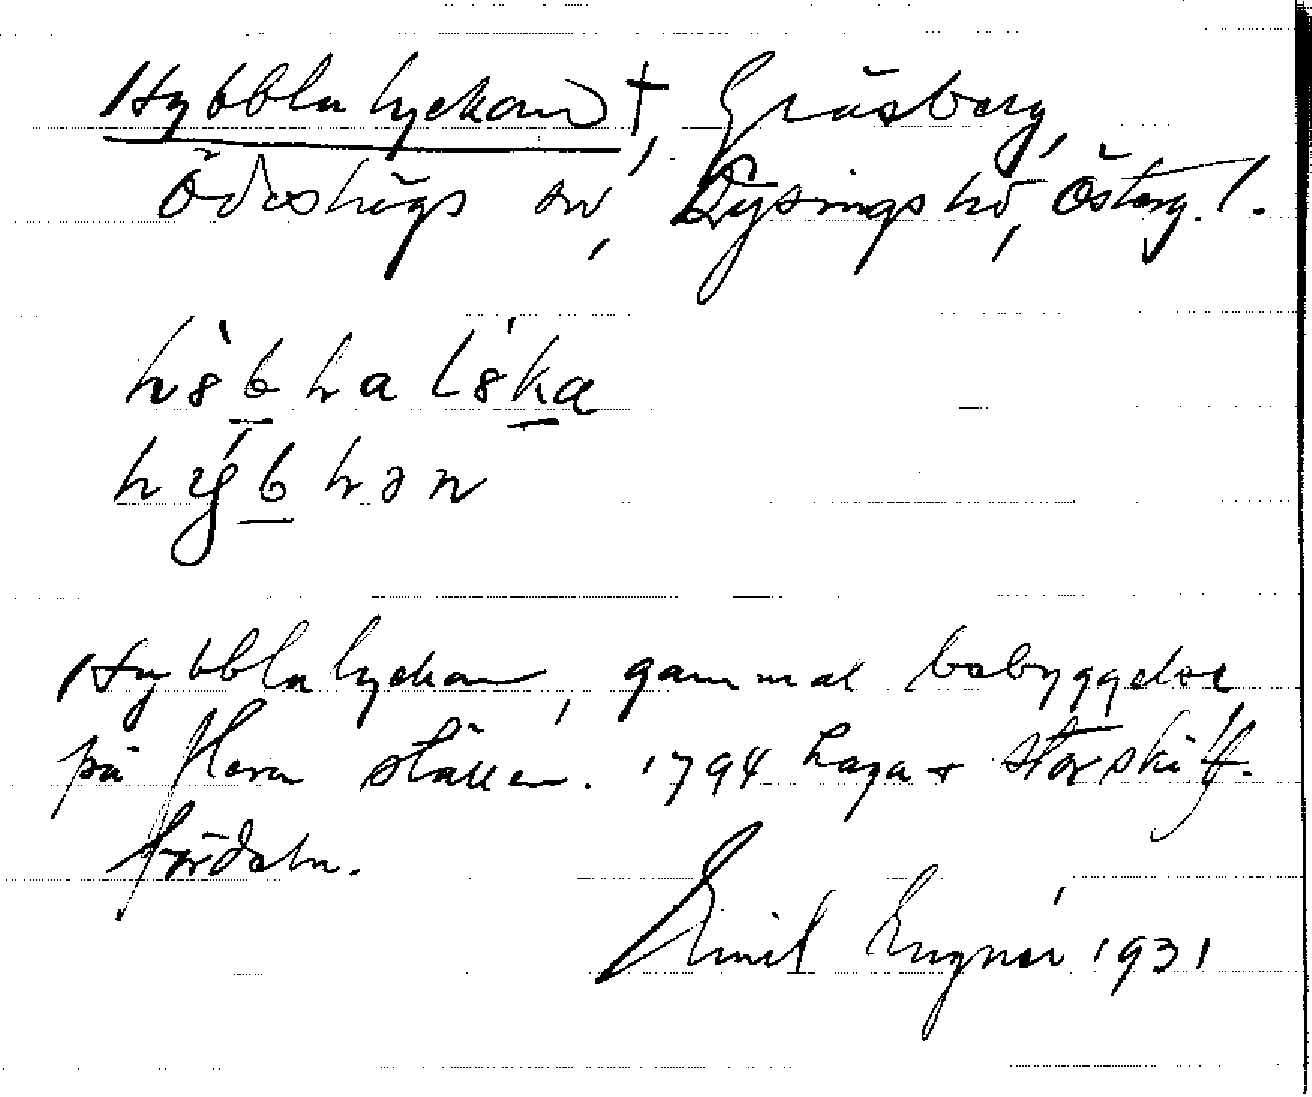 Hybblalyckan †, Gråsberg,
Ödeshögs sn, Lysings hd, Österg. l.
hỳbbla lýka
hýblən
Hybblalyckan, gammal bebyggelse
på flera ställen. 1794 Laga + storskift
fördeln.
Emil Engnér 1931